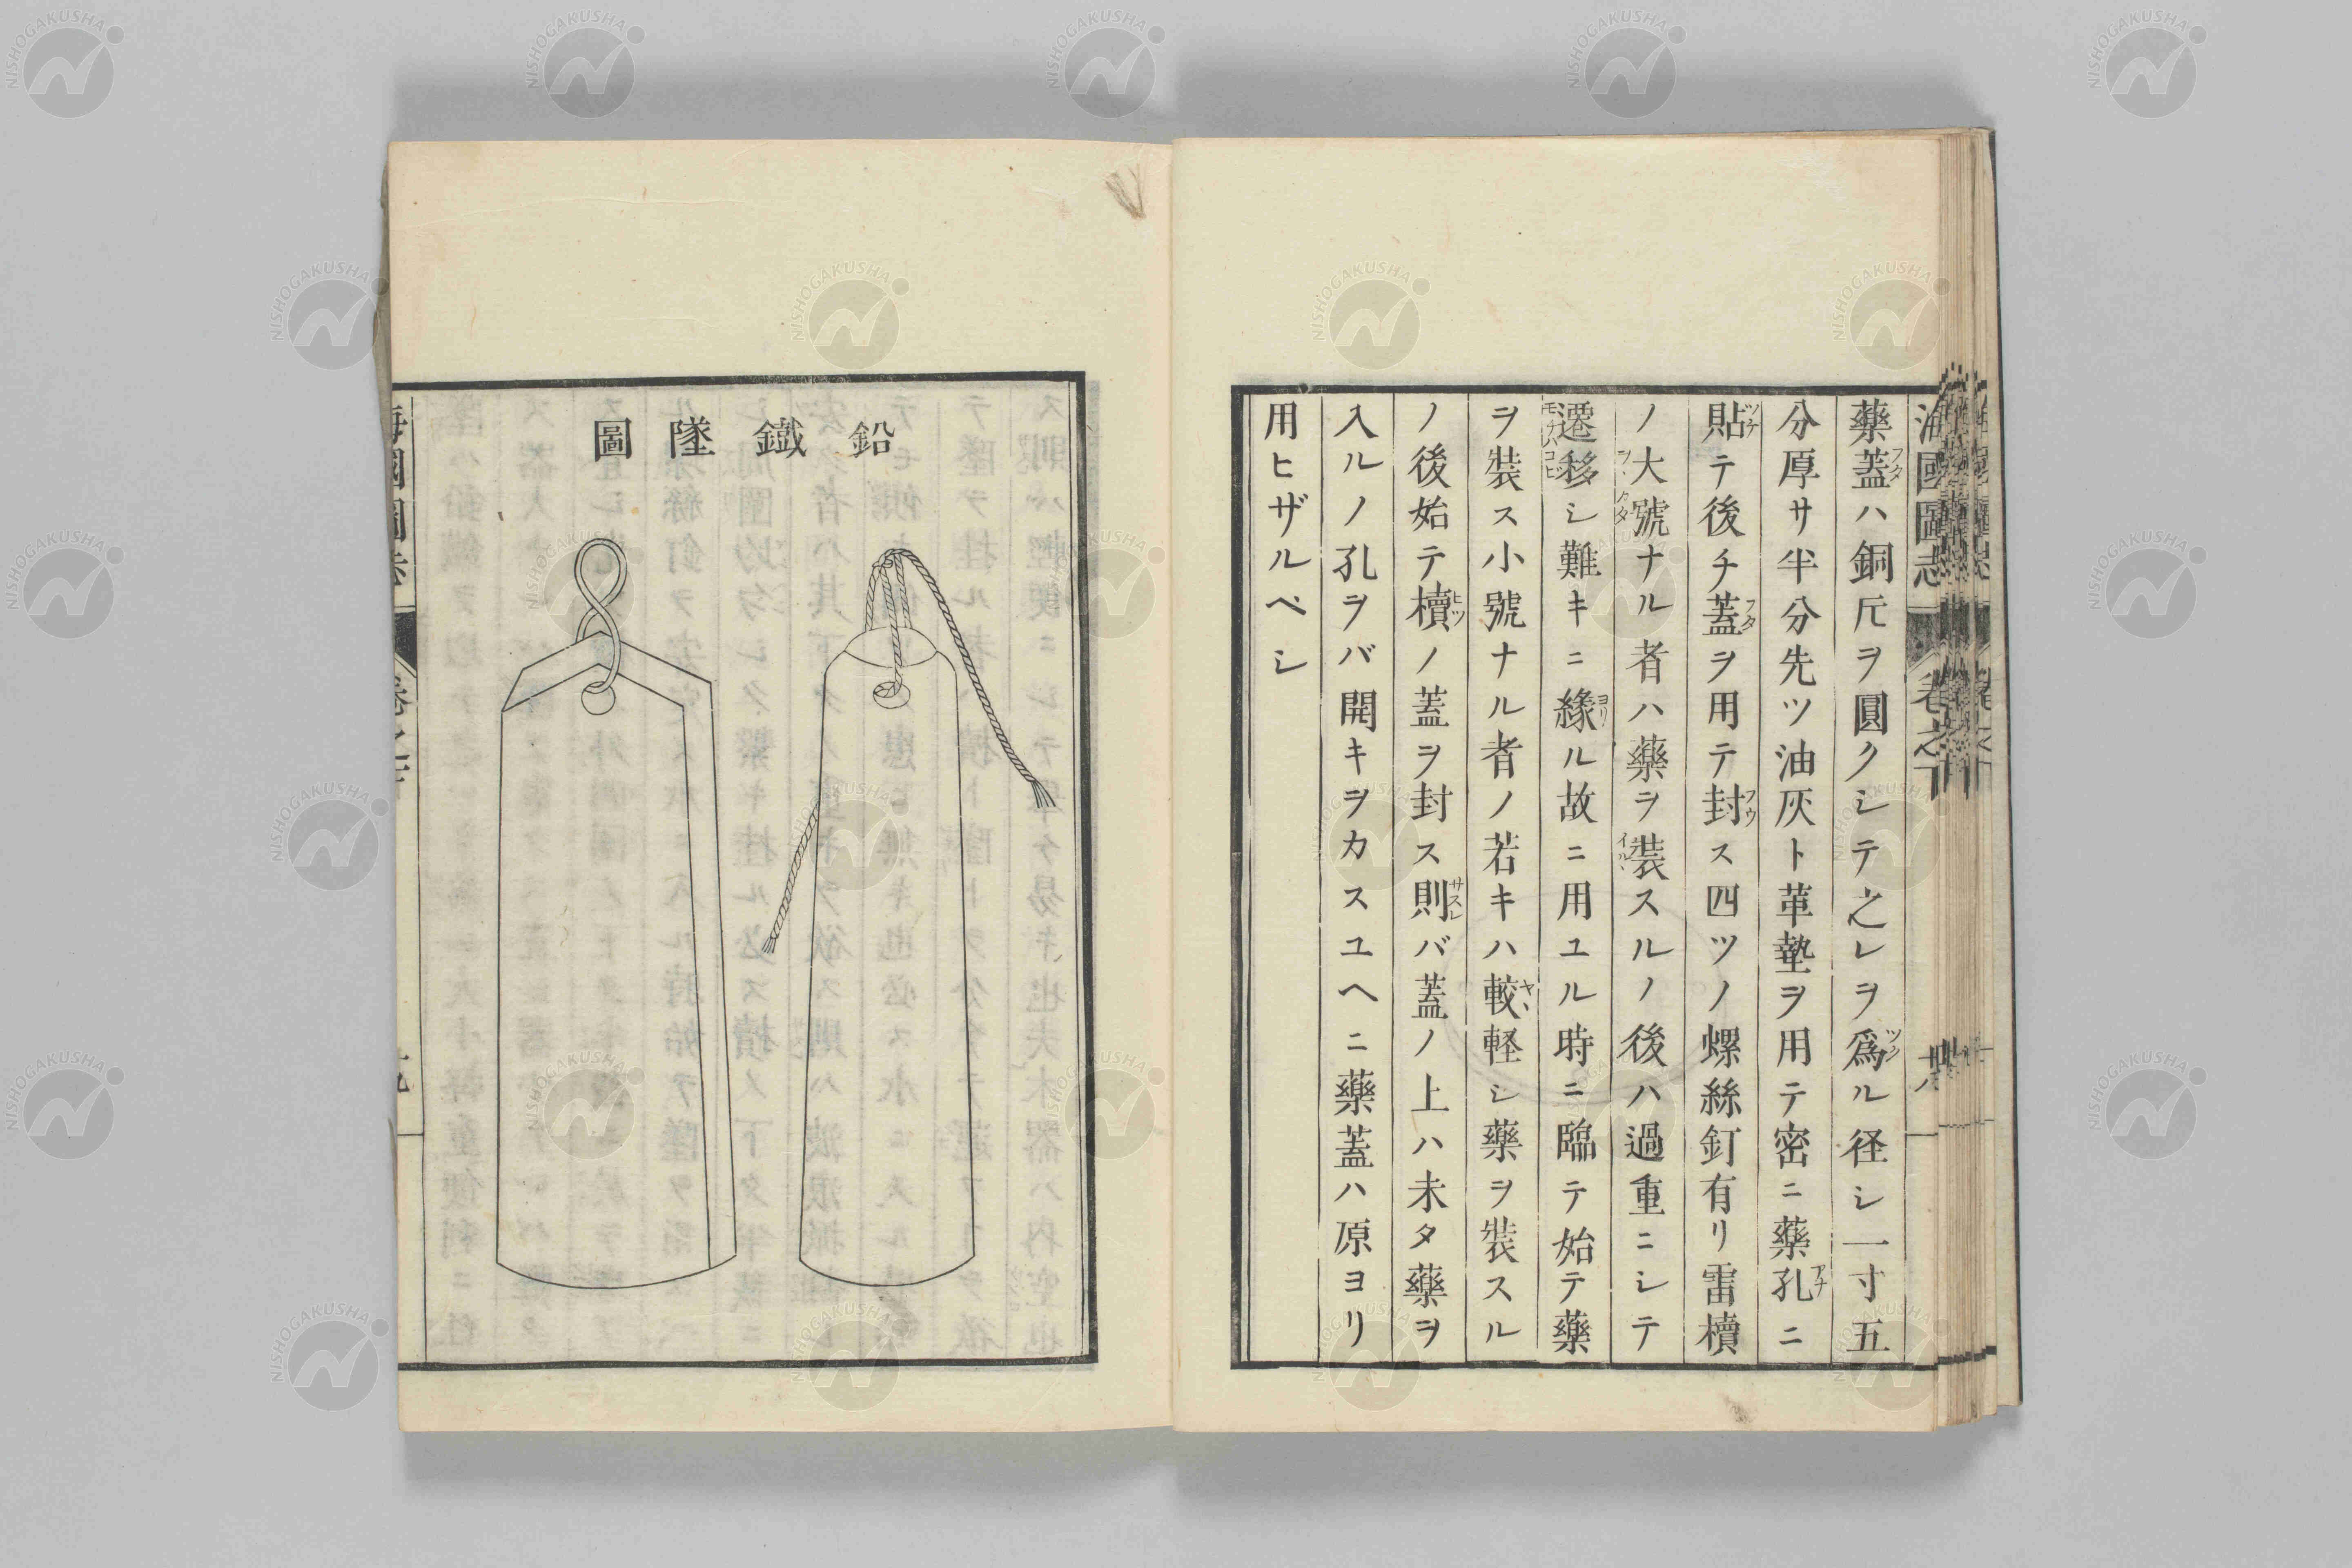 海國圖志 卷之下 十八
藥蓋ハ銅斤ヲ圓クシテ之レヲ爲ル径シ一寸五
分厚サ半分先ツ油灰ト革墊ヲ用テ密ニ藥孔ニ
貼テ後チ蓋ヲ用テ封ス四ツノ螺絲釘有リ雷櫝
ノ大號ナル者ハ藥ヲ装スルノ後ハ過重ニシテ
遷移シ難キニ緣ル故ニ用ユル時ニ臨テ始テ藥
ヲ裝ス小號ナル者ノ若キハ較軽シ藥ヲ裝スル
ノ後始テ櫝ノ蓋ヲ封ス則バ蓋ノ上ハ未タ藥ヲ
入ルノ孔ヲバ開キヲカスユヘニ藥蓋ハ原ヨリ
用ヒザルベシ
鉛鐵墜圖
海國圖志 卷之下 十九
NISHOGAKUSHA